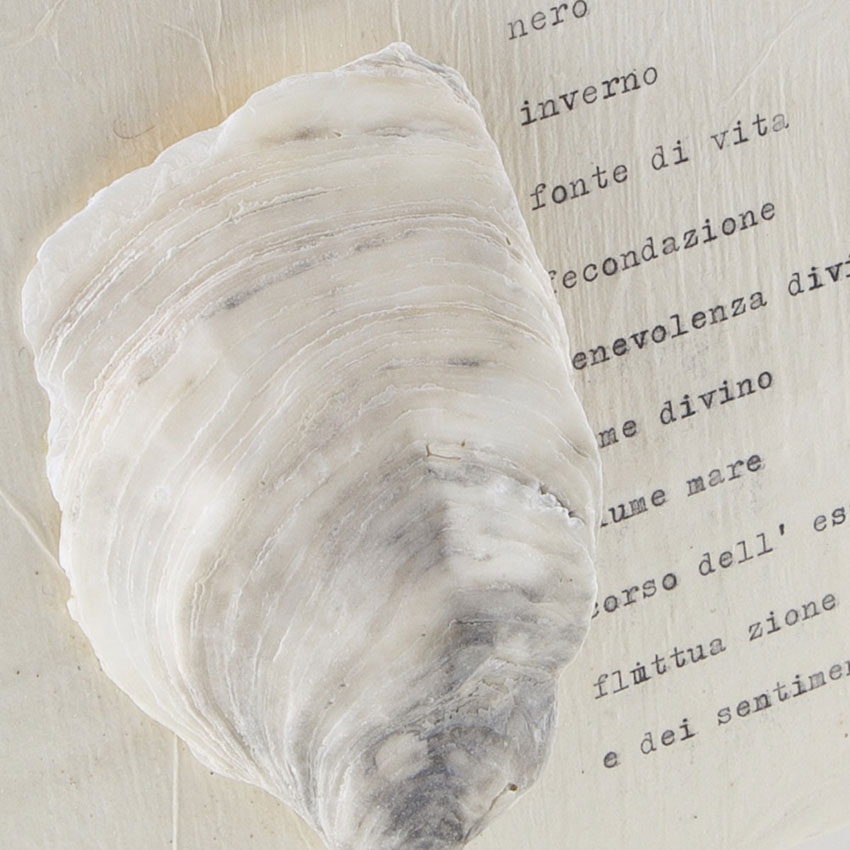 nero
inverno
fonte di vita
fecondazione
enevolenza divi
me divino
ume mare
corso dell' es
fluttua zione
e dei sentimen